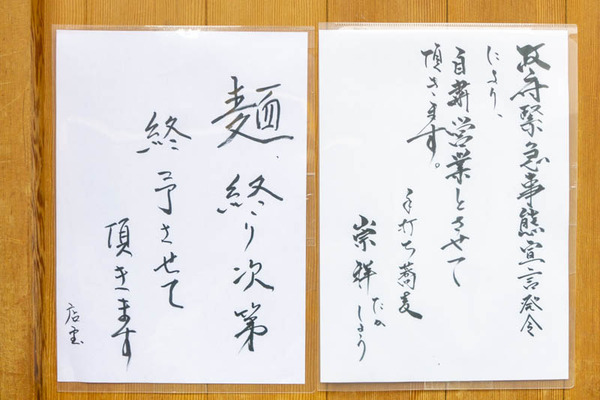 政府緊急事態宣言発令
により、
自粛営業とさせて
頂きます。
手打ち蕎麦
崇祥
たかしょう
麺、終り次第
終了させて
頂きます
店主